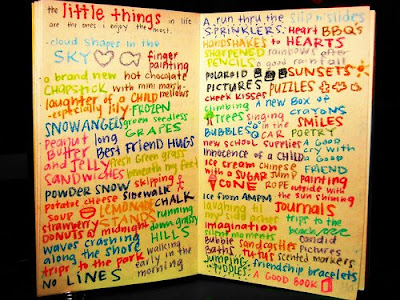 the little things in life
are the ones i enjoy the most.
-cloud shapes in the
SKY finger
painting
a brand new hot chocolate
CHAPSTICK with mini marsh-
mellows
laughter of a CHILD
-especially lily FROZEN
SNOWANGELS green seedless
GRAPES
peanut long
Butter Best Friend HUGS
and JELLY fresh green grass
SANDWICHES beneath my feet
POWDER SNOW skipping
potatoe cheese SIDEWALK
soup LEMONADE CHALK
strawberry STANDS running
DONUTS @ midnight down grassy
waves crashing HILLS
along the shore walking
trips to the park early in the
NO LINES morning
A run thru the slip n slides
SPRINKLERS. Heart BBQs
HANDSHAKES to HEARTS
sharpened rainbows after
PENCILS a good rainfall
POLAROID SUNSETS
PICTURES PUZZLES
cheek kisses
climbing A new Box of
TREES singing CRAYONS
BUBBLES in the SMILES
CAR POETRY
new school supplies A Good
innocence of a CHILD cry with
a Good
ice cream chinese FRIEND
with a SUGAR jump painting
CONE ROPE outside with
the sun
ice from AMPM shining
laughing til Journals
my side aches trips to the
imagination beach
silent moments candid
Bubble sandcastles pictures
Baths Tutus scented markers
jumping friendship bracelets
in PUDDLES. A GOOD BOOK